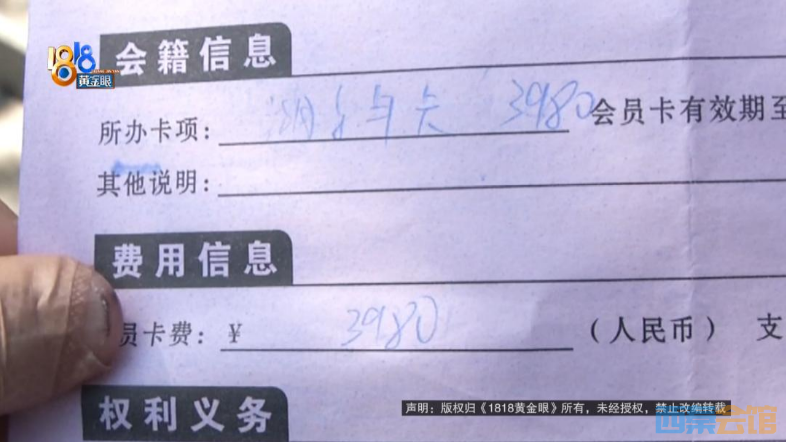 1818
黄金眼
会籍信息
所办卡项： 卡 3980 会员卡有效期至
其他说明：
费用信息
员卡费：￥ 3980 （人民币） 支
权利义务
声明：版权归《1818黄金眼》所有，未经授权，禁止改编转载
四象会馆